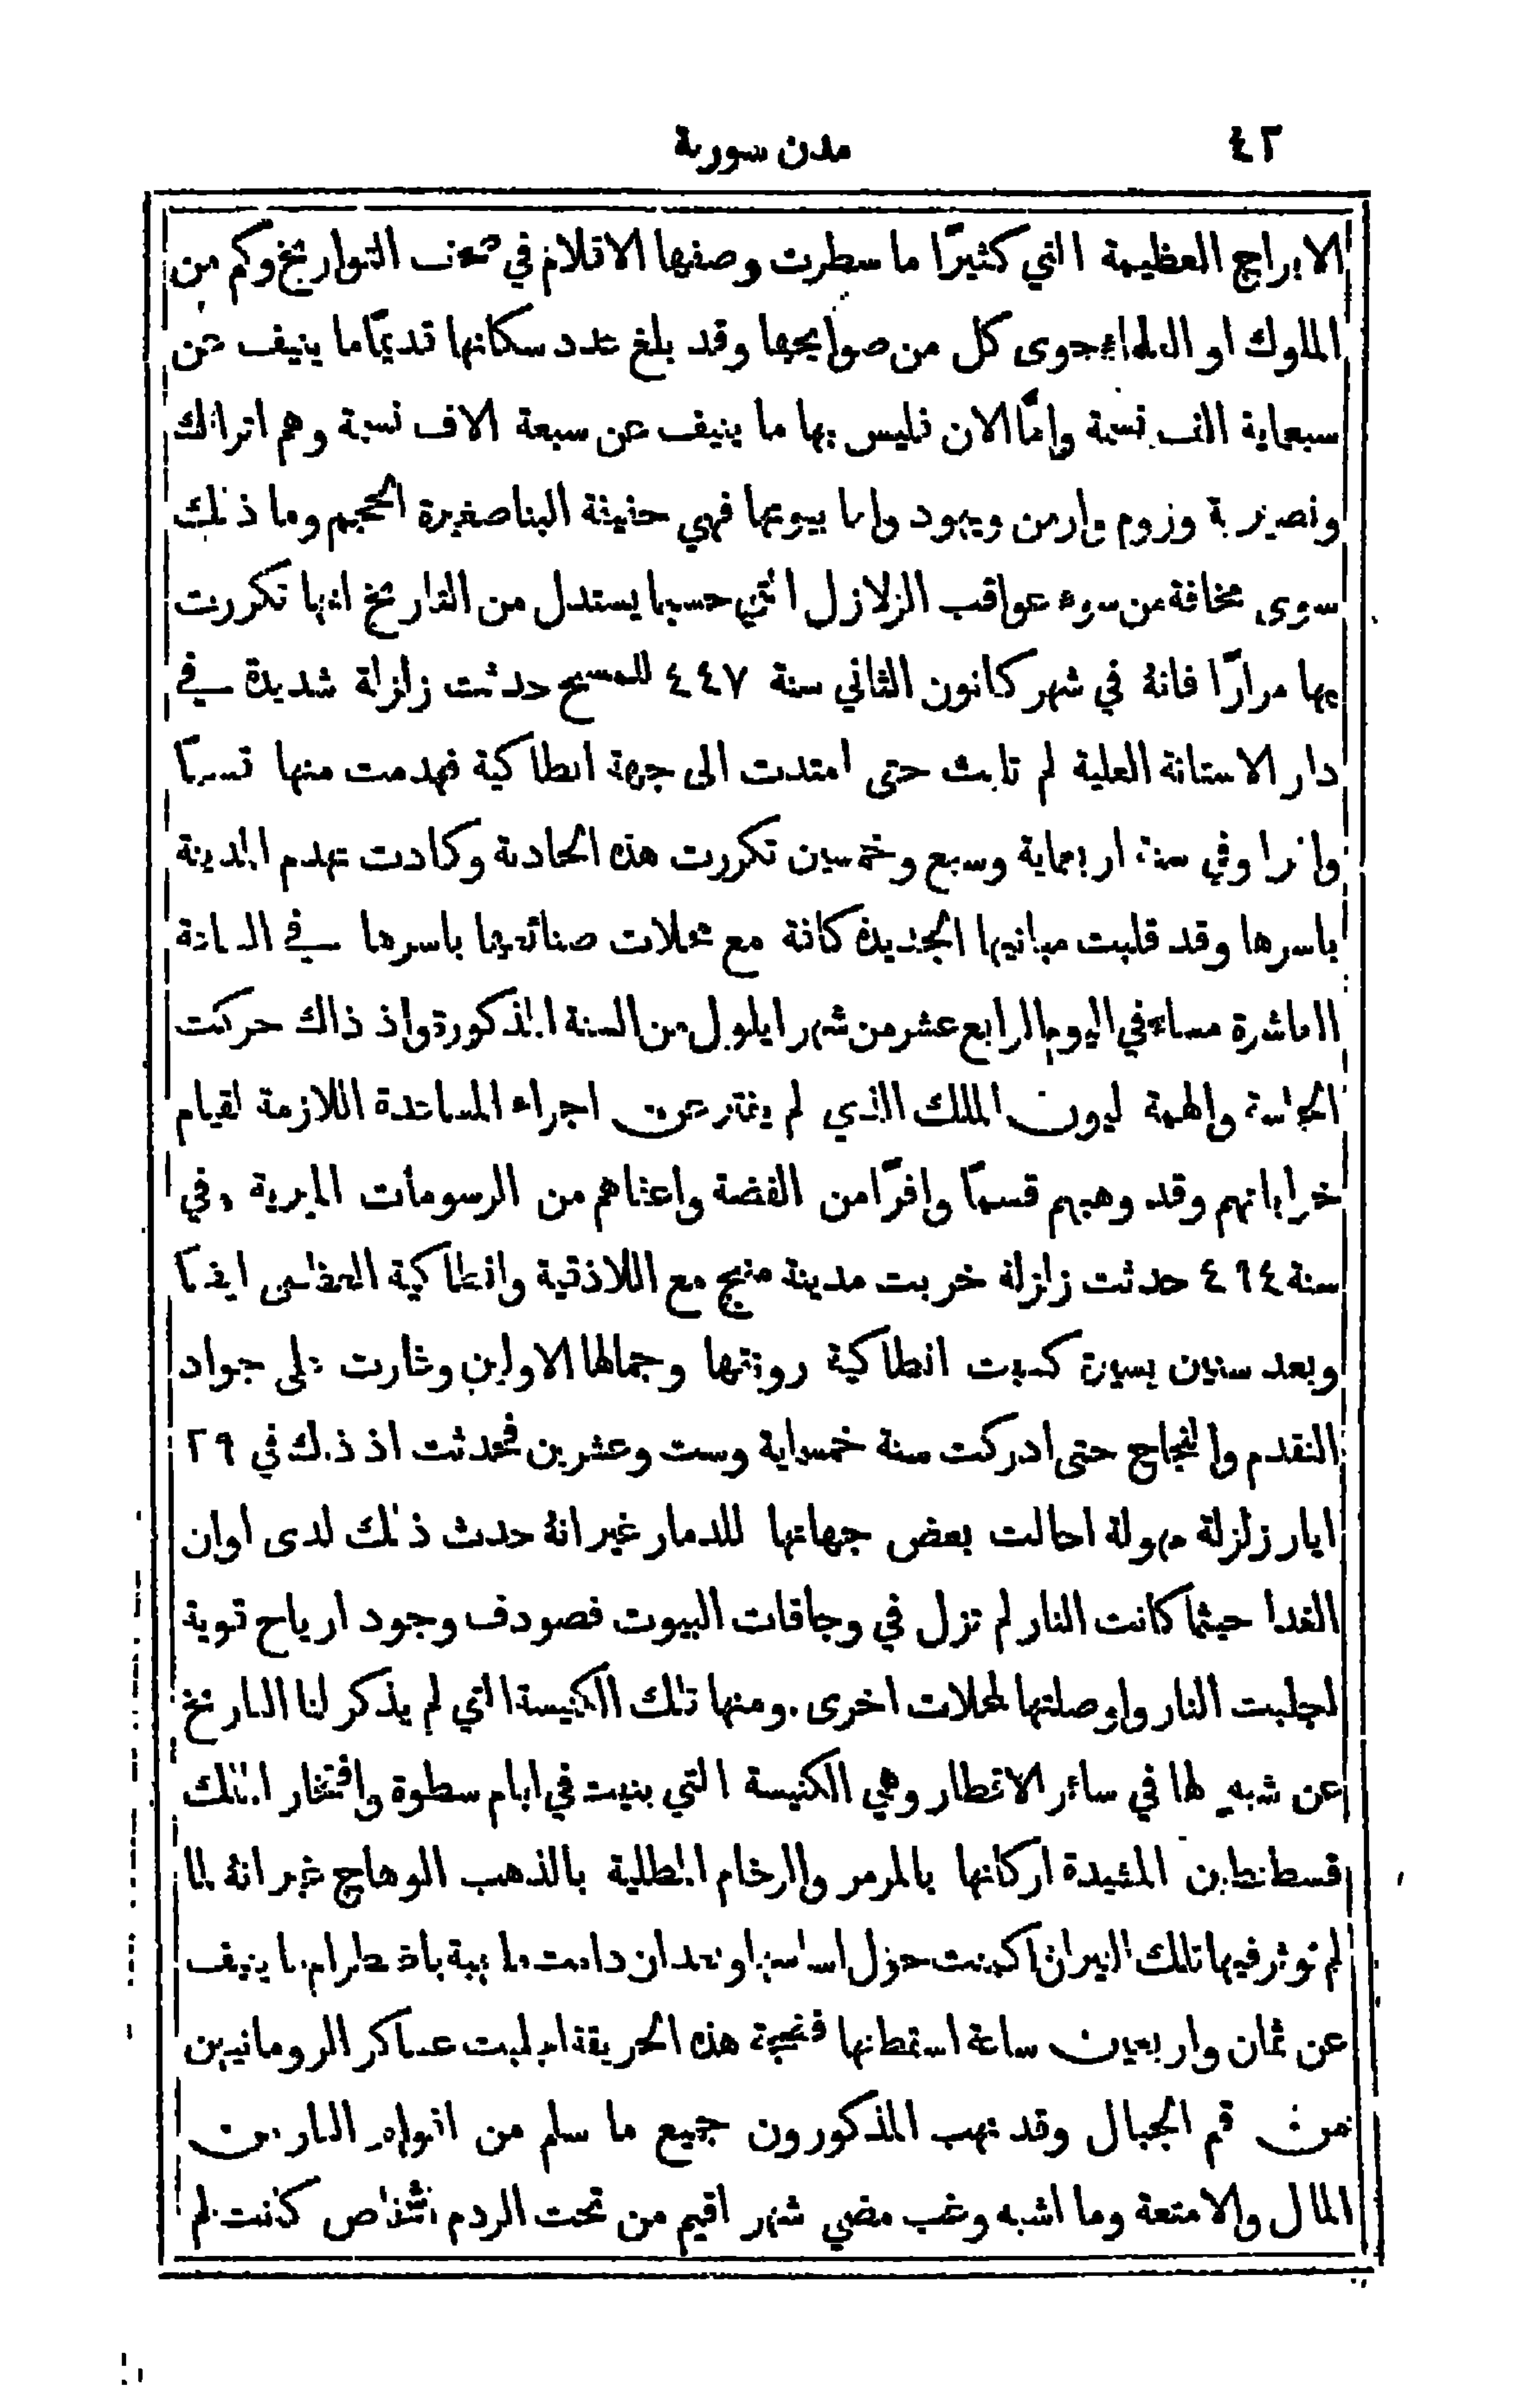 ٤٢ مدن سورية
الابراج العظيمة التي كثيرًا ما سطرت وصفها الاقلام في صحف التواريخ وكم من
الملوك او العلماء حوى كل من صوابحها وقد بلغ عدد سكانها قديمًا ما ينيف عن
سبعماية الف نسمة وامَّا الان فليس بها ما ينيف عن سبعة الاف نسمة وهم اتراك
ونصيرية وروم وارمن ويهود واما بيوتها فهي خفيفة البنا صغيرة الحجم وما ذلك
سوى مخافة من سوء عواقب الزلازل التي حسبما يستدل من التاريخ انها تكررت
بها مرارًا فانهُ في شهر كانون الثاني سنة ٤٤٧ للمسيح حدثت زلزلة شديدة في
دار الاستانة العلية لم تلبث حتى امتدت الى جهة انطاكية فهدمت منها قسمًا
وافرا وفي سنة اربعماية وسبع وخمسين تكررت هذه الحادثة وكادت تهدم المدينة
باسرها وقد قلبت مبانيها الجديدة كافة مع محلات صنائعها باسرها في الساعة
العاشرة مساء في اليوم الرابع عشر من شهر ايلول من السنة المذكورة واذ ذاك حركت
الحماسة والهمة ليون الملك الذي لم يفتر عن اجراء المساعدة اللازمة لقيام
خراباتهم وقد وهبهم قسمًا وافرًا من الفضة واعفاهم من الرسومات الميرية وفي
سنة ٤٦٤ حدثت زلزلة خربت مدينة منبج مع اللاذقية وانطاكية العظمى ايضًا
وبعد سنين يسيرة كسبت انطاكية رونقها وجمالها الاولين وثارت على جواد
التقدم والنجاح حتى ادركت سنة خمسماية وست وعشرين فحدثت اذ ذلك في ٢٩
ايار زلزلة مهولة احالت بعض جهاتها للدمار غير انهُ حدث ذلك لدى اوان
الغدا حيثما كانت النار لم تزل في وجاقات البيوت فصودف وجود ارياح قوية
لجلبت النار واوصلتها لمحلات اخرى. ومنها تلك الكنيسة التي لم يذكر لنا التاريخ
عن شبهٍ لها في سائر الاقطار وهي الكنيسة التي بنيت في ايام سطوة وافتخار الملك
قسطنطين المشيدة اركانها بالمرمر والرخام المطلية بالذهب الوهاج غير انهُ لما
لم تؤثر فيها تلك النيران اكمنت حول اساسها وبعد ان دامت ملتهبة باضطرام ما ينيف
عن ثمان واربعين ساعة اسقطتها فنتيجة هذه الحريقة جلبت عساكر الرومانيين
من قمم الجبال وقد نهب المذكورون جميع ما سلم من افواه النار من
المال والامتعة وما اشبه وغب مضي شهر اقيم من تحت الردم اشخاص كانت لم